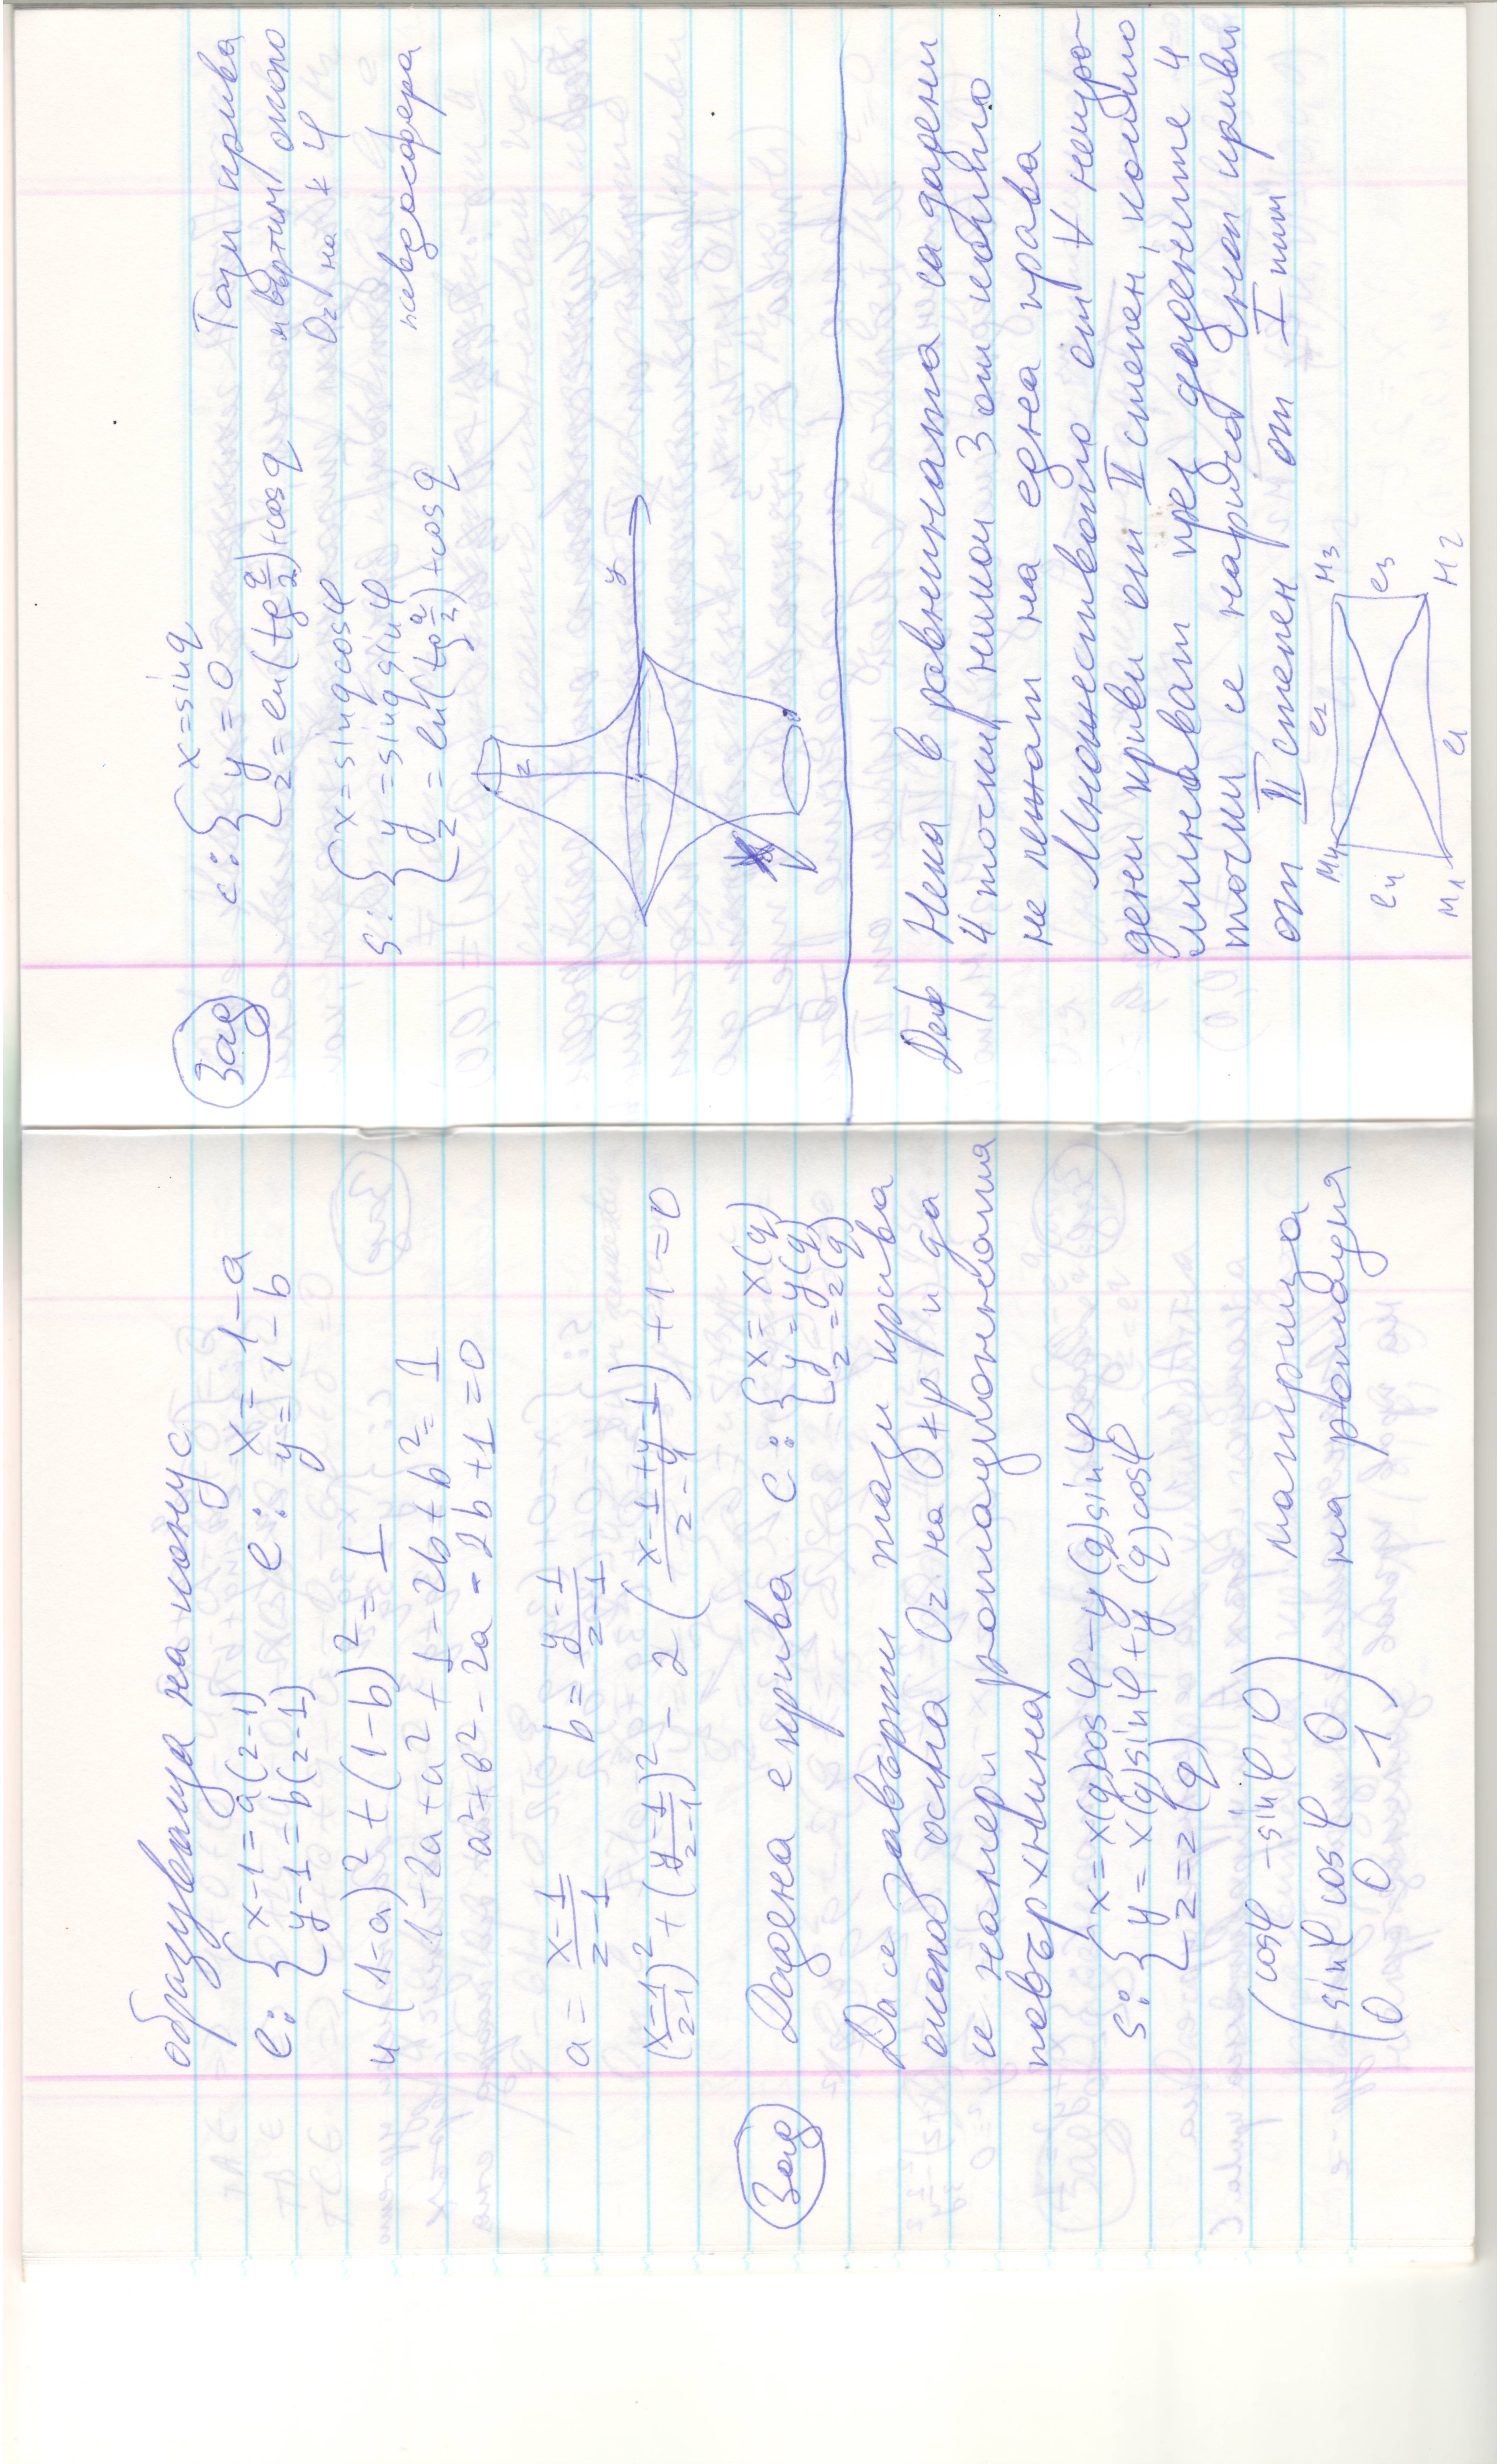 образуваща на конус
l: { x-1=a(z-1)
y-1=b(z-1)
l: x=1-a
y=1-b
4(1-a)²+(1-b)²=1
1-2a+a²+1-2b+b²=1
a²+b²-2a-2b+1=0
a=\frac{x-1}{z-1} b=\frac{y-1}{z-1}
(\frac{x-1}{z-1})²+(\frac{y-1}{z-1})²-2(\frac{x-1+y-1}{z-1})+1=0
Зад Дадена е крива c: { x=x(q)
y=y(q)
z=z(q)
Да се завърти тази крива
около остта Oz на ∢φ и да
се намери ротационната
повърхнина
S: { x=x(q)cosφ-y(q)sinφ
y=x(q)sinφ+y(q)cosφ
z=z(q)
(cosφ -sinφ 0
sinφ cosφ 0
0 0 1) матрица
на ротация
Зад c: { x=sinq
y=0
z=ln(tg\frac{q}{2})+cosq
Тази крива
я въртим около
Oz на ∢φ
S: { x=sinqcosφ
y=sinqsinφ
z=ln(tg\frac{q}{2})+cosq
псевдосфера
z
y
Деф Нека в равнината са дадени
4 точки, никои 3 от които
не лежат на една права
Множеството от ∀ неизро-
дени криви от II степен, които
минават през дадените 4
точки се нарича сноп криви
от II степен от I тип
M4 l2 M3
l4 l3
M1 l1 M2